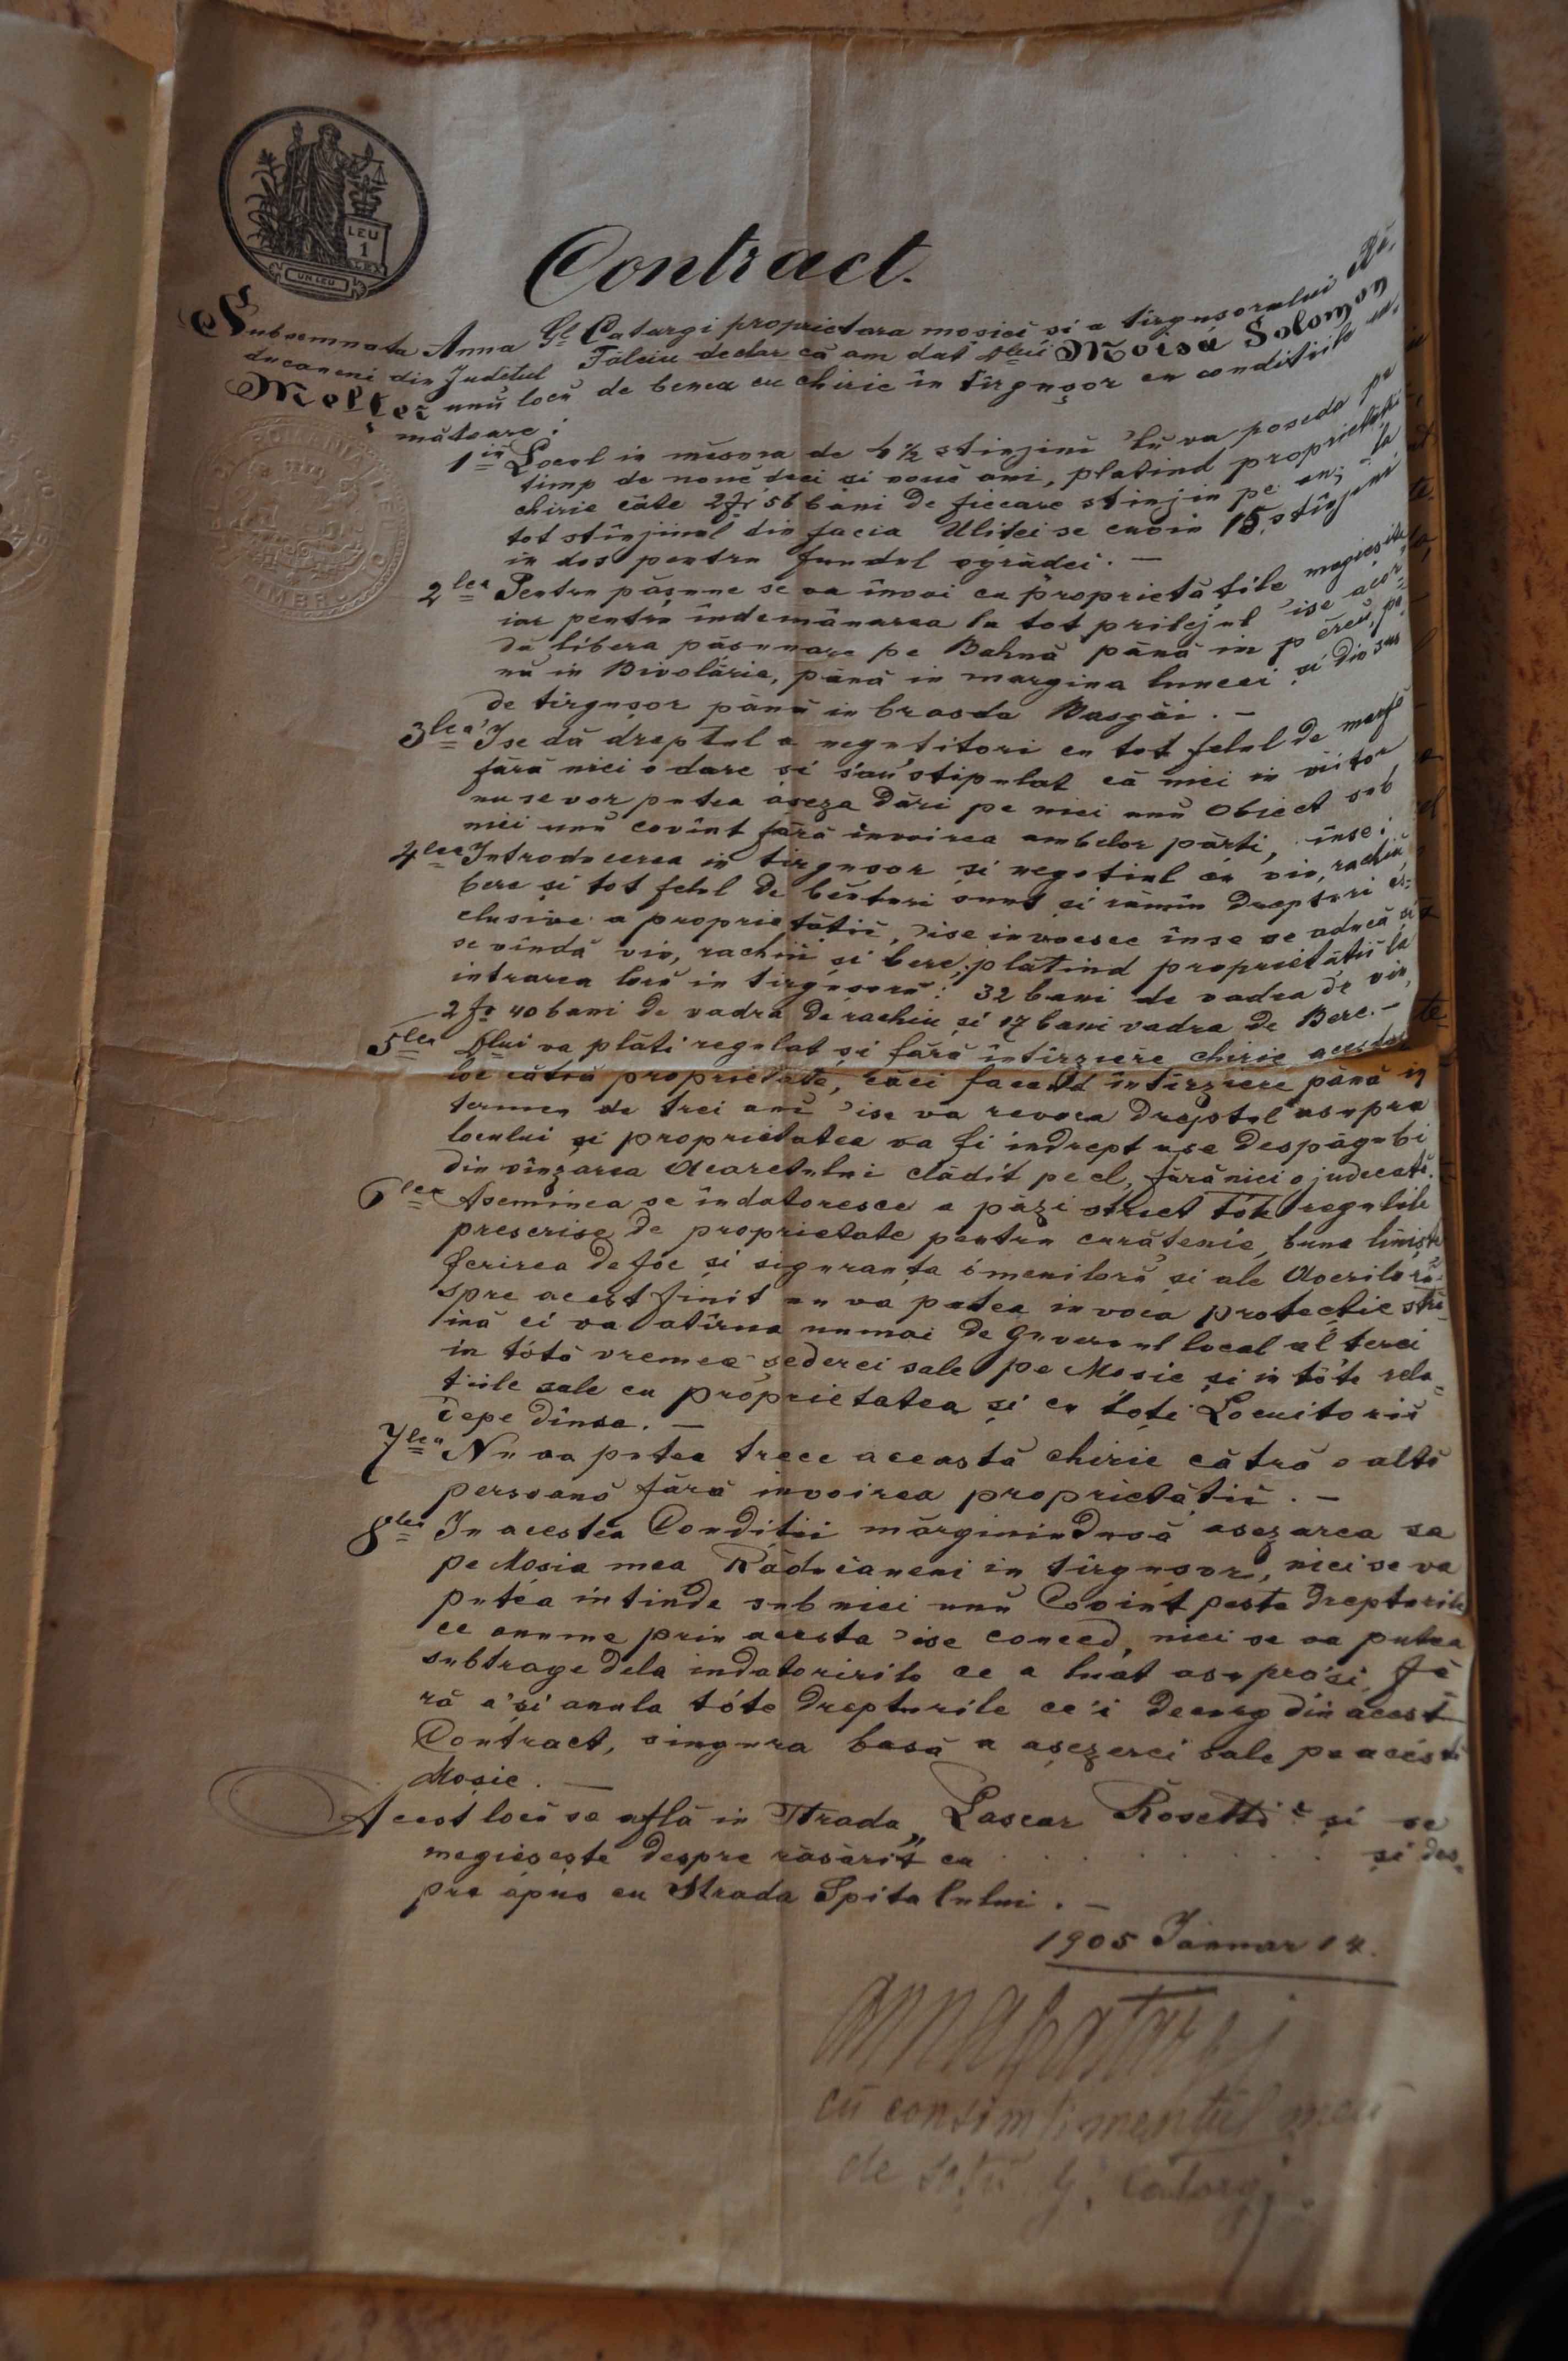 LEU
1
LEY
UN LEU
Contract.
Subsemnata Anna Gh Catargi proprietara mosiei si a tirgusorului Ră-
ducaneni din Judetul Fălciu declar că am dat dlui Moisă Solomon
Meller unŭ locŭ de benea cu chirie în tîrgușor cu condițiile ur-
mătoare:
1iu Locul in mĕsura de 4 ½ stînjinĭ 'lŭ va poseda pe
timp de nouĕdeci si nouĕ ani, platind proprietăței
chirie câte 2 fr 56 bani de fiecare stinjin pe an; la
tot stînjinul din facia Uliței se cuvin 15 stînjini
in dos pentru fundul ogrădei. —
2lea Pentru pășune se va învoi cu proprietățile megieșite
iar pentru îndemânarea la tot prilejul 'i se acor-
dă libera pășunare pe Bahnă până in pĕrĕu, pă-
nă in Bivolărie, până in marginea luncei și din sus
de tirgușor până in brasda Basgăi. —
3lea I se dă dreptul a negutitori cu tot felul de marfă
fără nici o dare și s'aŭ stipulat că nici in viitor
nu se vor putea așeza Dări pe nici unŭ Obiect sub
nici unŭ covînt fără invoirea ambelor părti, înse:
4lea Introducerea in tirgușor și negoțiul cu vin, rachiŭ,
bere și tot felul de bĕuturi sunt și rămîn Drepturi es-
clusive a proprietătiĭ, 'i se invoesce înse se aducă și
se vîndă vin, rachiŭ și bere, plătind proprietătiĭ la
intrarea lorŭ in tirgușorŭ: 32 bani de vadra de vin,
2 fr 40 bani de vadra de rachiu și 17 bani vadra de Bere. —
5lea Dlui va plăti regulat și fără întîrziere chirie acestui
loc cătră proprietate, căci facend întîrziere până in
termen de trei anĭ 'i se va revoca Dreptul asupra
locului și proprietatea va fi indrept a se despăgubi
din vînzarea Acaretului clădit pe el, fără nici o judecată.
6lea Aseminea se îndatoresce a păzi strict tóte regulile
prescrise de proprietate pentru curățenie, buna liniște
ferirea de foc și siguranța ómenilorŭ și ale Averilorŭ.
spre acest finit nu va putea invoca protecție stră-
ină ci va atîrna numai de guvernul local al țerei
in tótă vremea șederei sale pe Mosie și in tóte rela-
țiile sale cu proprietatea și cu toți Locuitoriĭ
depe dînsa. —
7lea Nu va putea trece aceastá chirie cătră o altă
persoană fără invoirea proprietățiĭ. —
8lea In acestea Condiții mărginindusă așezarea sa
pe Mosia mea Răducaneni in tîrgușor, nici se va
putéa intinde sub nici unŭ Covint peste Drepturile
ce anume prin acesta 'i se conced, nici se va putea
subtrage dela indatoririle ce a luat asupra'și, fă-
ră a'și anula tóte Drepturile ce'i decurg din acest
Contract, singura basă a așezerei sale pe acéstă
Moșie. —
Acest locŭ se află in Strada „Lascar Rosetti" și se
megieșește despre răsărit cu . . . . . . . . . . și des-
pre apus cu Strada Spitalului. —
1905 Ianuar 14.
Anna Catargi
cŭ consimtimentul meŭ
de soțŭ G. Catargi